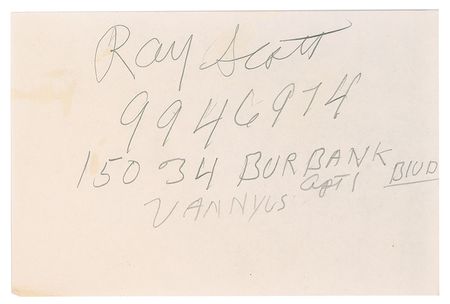 Ray Scott
9946974
15034 BURBANK BlUD
apt 1
VANNYUS